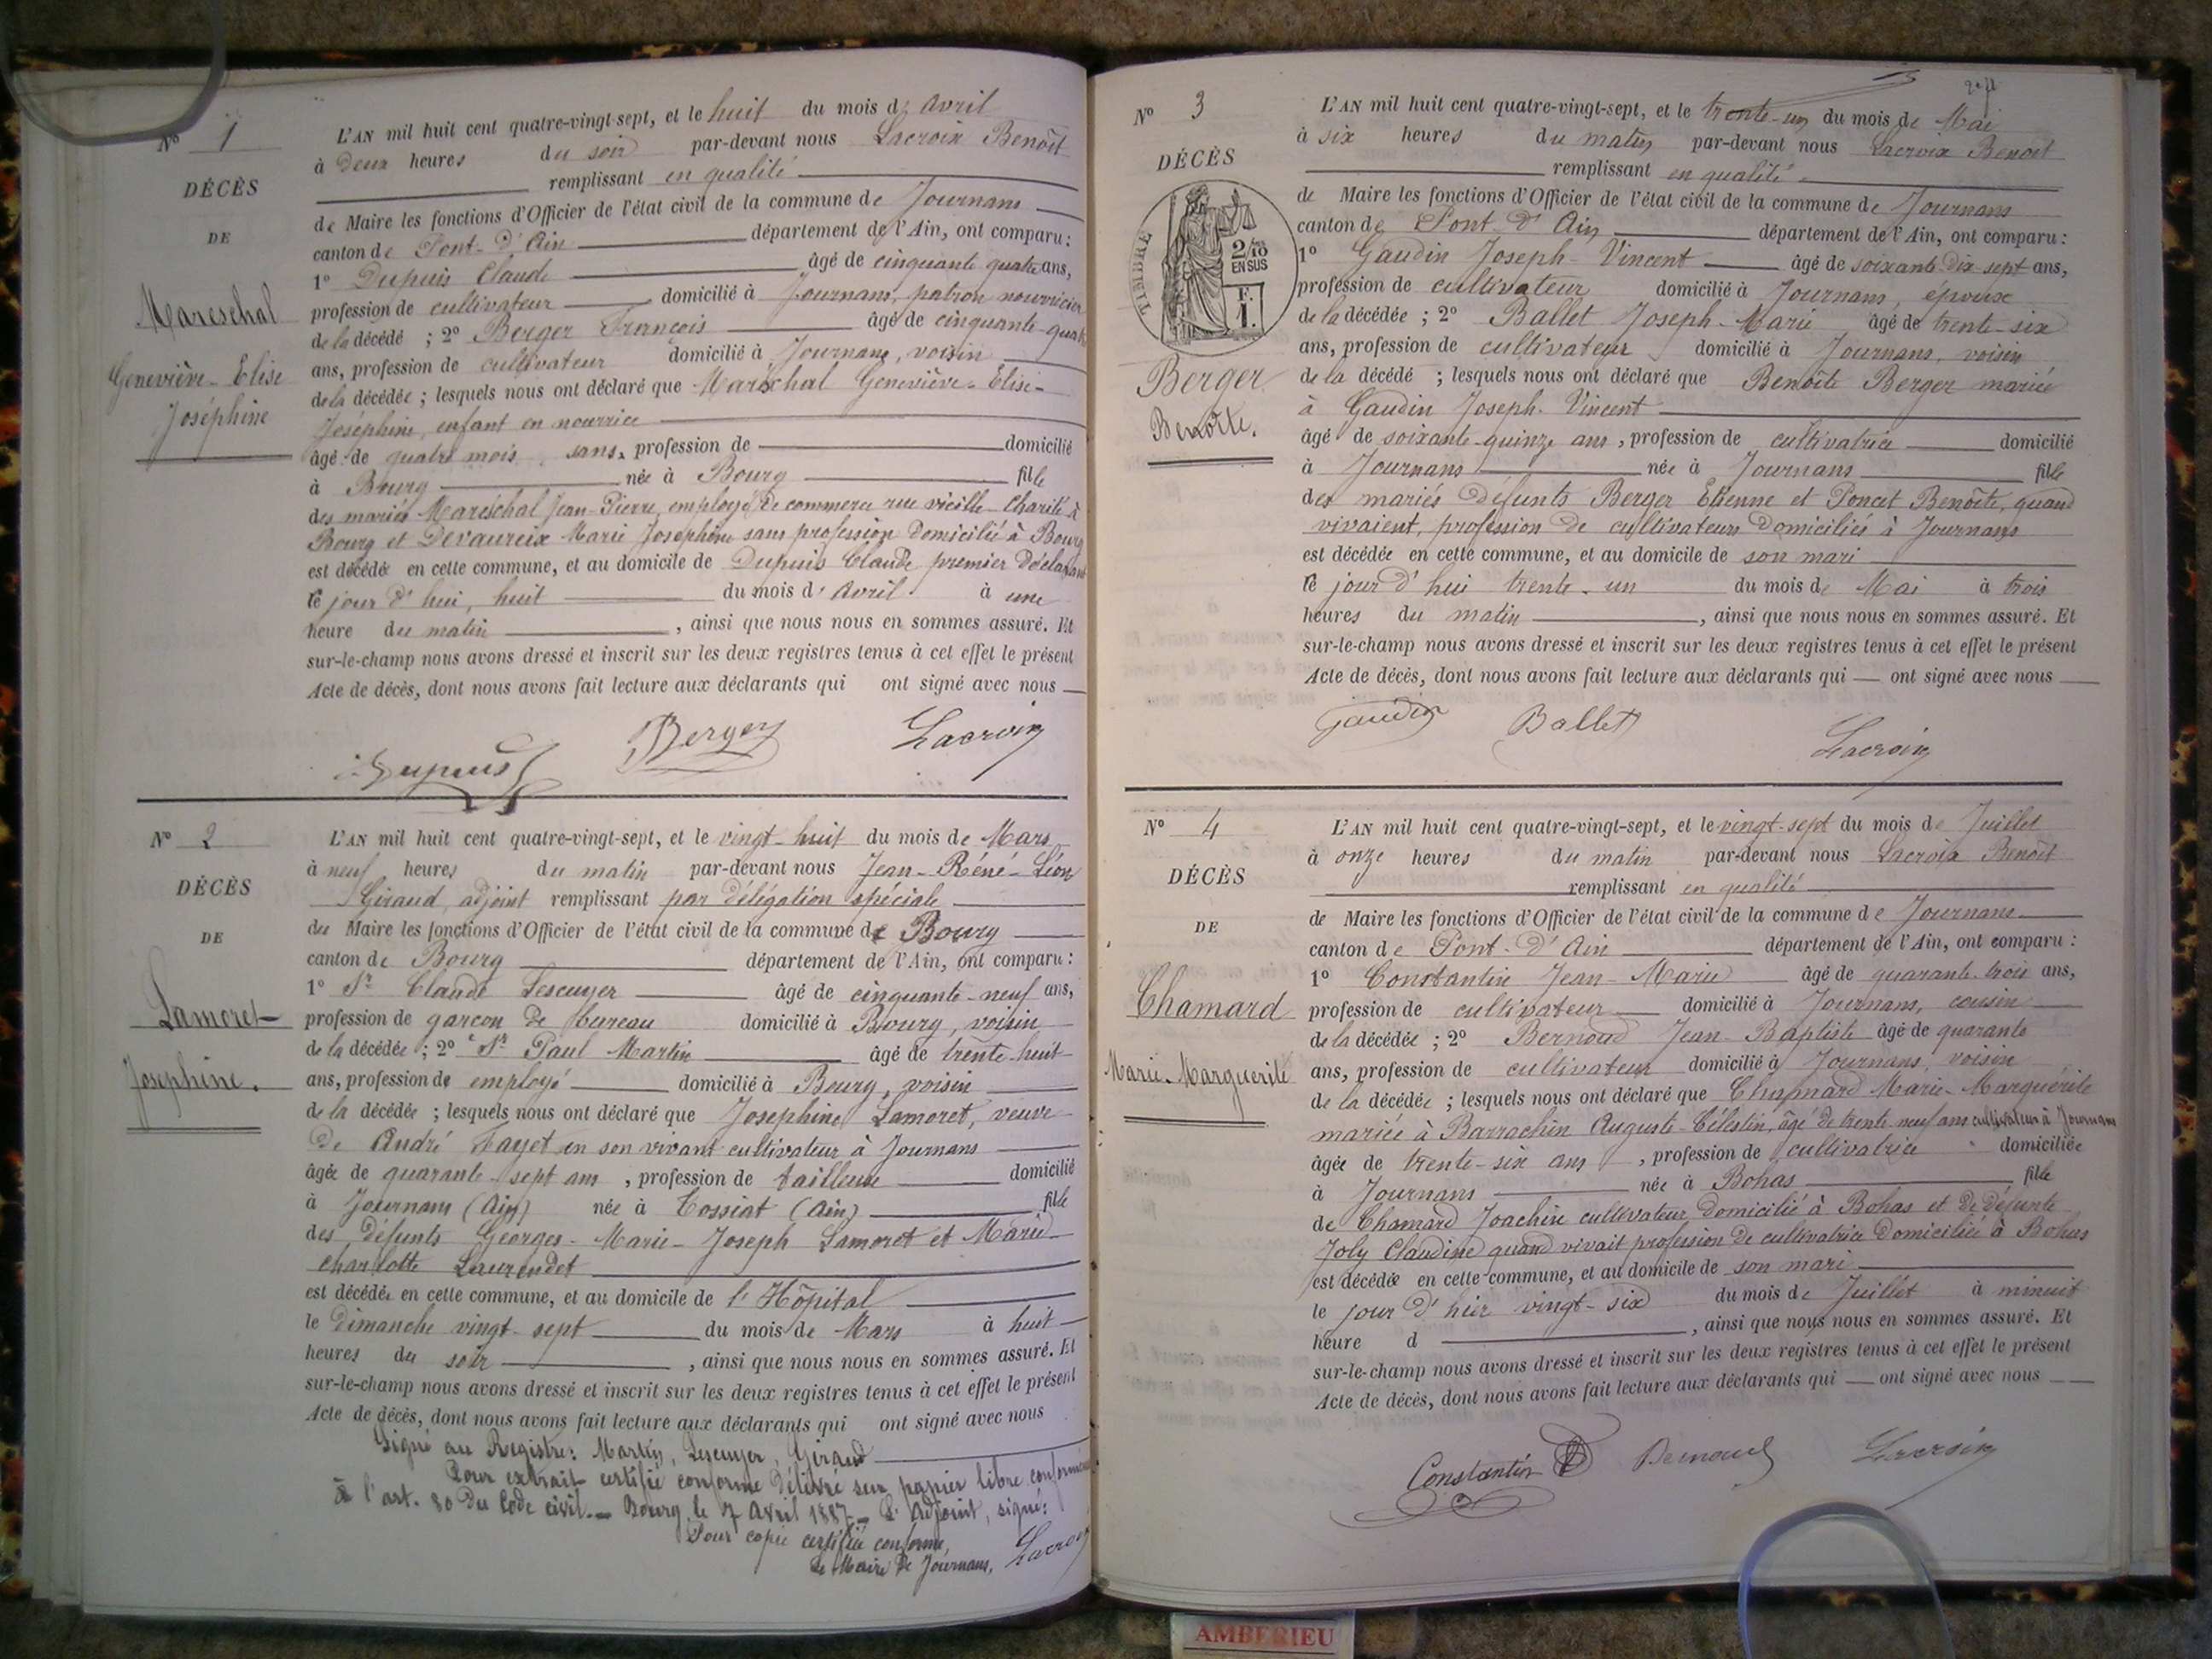 N° 1
DÉCÈS
DE
Mareschal
Geneviève-Elise
Joséphine
L'AN mil huit cent quatre-vingt-sept, et le huit du mois d' avril
à deux heures du soir par-devant nous Lacroix Benoît
remplissant en qualité
de Maire les fonctions d'Officier de l'état civil de la commune de Journans
canton de Pont-d'Ain département de l'Ain, ont comparu :
1° Dupuis Claude âgé de cinquante quatre ans,
profession de cultivateur domicilié à Journans, patron nourricier
de la décédé ; 2° Berger François âgé de cinquante-quatre
ans, profession de cultivateur domicilié à Journans, voisin
de la décédée ; lesquels nous ont déclaré que Maréschal Geneviève-Elise-
Joséphine, enfant en nourrice
âgé de quatre mois, sans, profession de domicilié
à Bourg née à Bourg fille
des mariés Maréschal Jean-Pierre, employé de commerce rue vieille-Charité à
Bourg et Devaureix Marie Joséphine sans profession domicilié à Bourg
est décédé en cette commune, et au domicile de Dupuis Claude premier déclarant
le jour d'hui, huit du mois d' avril à une
heure du matin , ainsi que nous nous en sommes assuré. Et
sur-le-champ nous avons dressé et inscrit sur les deux registres tenus à cet effet le présent
Acte de décès, dont nous avons fait lecture aux déclarants qui ont signé avec nous
Dupuis Berger Lacroix
N° 2
DÉCÈS
DE
Lamoret
Josephine.
L'AN mil huit cent quatre-vingt-sept, et le vingt-huit du mois de Mars
à neuf heures du matin par-devant nous Jean-Réné-Léon
Giraud, adjoint remplissant par délégation spéciale
du Maire les fonctions d'Officier de l'état civil de la commune de Bourg
canton de Bourg département de l'Ain, ont comparu :
1° Sr Claude Lescuyer âgé de cinquante-neuf ans,
profession de garçon de bureau domicilié à Bourg, voisin
de la décédée ; 2° Sr Paul Martin âgé de trente-huit
ans, profession de employé domicilié à Bourg, voisin
de la décédée ; lesquels nous ont déclaré que Josephine Lamoret, veuve
de André Fayet en son vivant cultivateur à Journans
âgée de quarante-sept ans, profession de tailleuse domicilié
à Journans (Ain) née à Tossiat (Ain) fille
des défunts Georges-Marie-Joseph Lamoret et Marie-
charlotte Laurendet
est décédée en cette commune, et au domicile de l'Hôpital
le Dimanche vingt-sept du mois de Mars à huit
heures du soir , ainsi que nous nous en sommes assuré. Et
sur-le-champ nous avons dressé et inscrit sur les deux registres tenus à cet effet le présent
Acte de décès, dont nous avons fait lecture aux déclarants qui ont signé avec nous
Signé au Registre: Martin, Lescuyer, Giraud
Pour extrait certifié conforme délivré sur papier libre conformément
à l'art. 80 du Code civil.— Bourg, le 7 Avril 1887— L'Adjoint, signé:
Pour copie certifiée conforme,
Le Maire de Journans, Lacroix
N° 3
DÉCÈS
TIMBRE
2/10 EN SUS
F. 1.
Berger
Benoîte.
L'AN mil huit cent quatre-vingt-sept, et le trente-un du mois de Mai
à six heures du matin par-devant nous Lacroix Benoît
remplissant en qualité
de Maire les fonctions d'Officier de l'état civil de la commune de Journans
canton de Pont-d'Ain département de l'Ain, ont comparu :
1° Gaudin Joseph-Vincent âgé de soixante-dix-sept ans,
profession de cultivateur domicilié à Journans, époux
de la décédée ; 2° Ballet Joseph-Marie âgé de trente-six
ans, profession de cultivateur domicilié à Journans, voisin
de la décédé ; lesquels nous ont déclaré que Benoîte Berger mariée
à Gaudin Joseph-Vincent
âgé de soixante-quinze ans, profession de cultivatrice domicilié
à Journans née à Journans fille
des mariés défunts Berger Etienne et Poncet Benoîte, quand
vivaient, profession de cultivateurs domiciliés à Journans
est décédée en cette commune, et au domicile de son mari
le jour d'hui trente-un du mois de Mai à trois
heures du matin , ainsi que nous nous en sommes assuré. Et
sur-le-champ nous avons dressé et inscrit sur les deux registres tenus à cet effet le présent
Acte de décès, dont nous avons fait lecture aux déclarants qui ont signé avec nous
Gaudin Ballet Lacroix
N° 4
DÉCÈS
DE
Chamard
Marie-Marguerite
L'AN mil huit cent quatre-vingt-sept, et le vingt-sept du mois de Juillet
à onze heures du matin par-devant nous Lacroix Benoît
remplissant en qualité
de Maire les fonctions d'Officier de l'état civil de la commune de Journans
canton de Pont-d'Ain département de l'Ain, ont comparu :
1° Constantin Jean-Marie âgé de quarante-trois ans,
profession de cultivateur domicilié à Journans, cousin
de la décédée ; 2° Bernoud Jean-Baptiste âgé de quarante
ans, profession de cultivateur domicilié à Journans, voisin
de la décédée ; lesquels nous ont déclaré que Chamard Marie-Marguérite
mariée à Barrachin Auguste-Célestin, âgé de trente neuf ans cultivateur à Journans
âgée de trente-six ans , profession de cultivatrice domiciliée
à Journans née à Bohas fille
de Chamard Joachin cultivateur domicilié à Bohas et de défunte
Joly Claudine quand vivait profession de cultivatrice domiciliée à Bohas
est décédée en cette commune, et au domicile de son mari
le jour d'hier vingt-six du mois de Juillet à minuit
heure d , ainsi que nous nous en sommes assuré. Et
sur-le-champ nous avons dressé et inscrit sur les deux registres tenus à cet effet le présent
Acte de décès, dont nous avons fait lecture aux déclarants qui ont signé avec nous
Constantin Bernoud Lacroix
AMBERIEU